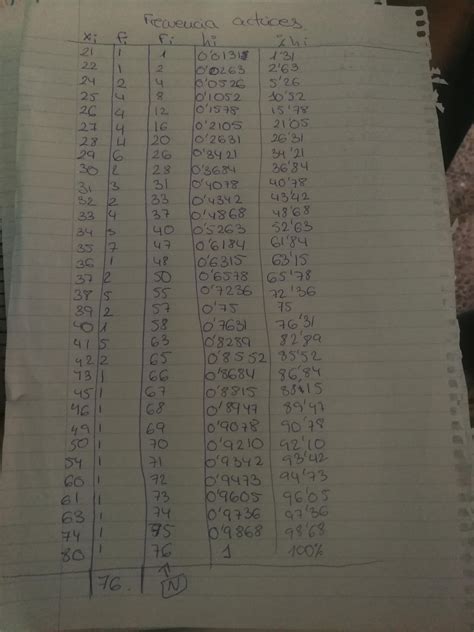 Frecuencia actrices
xi fi Fi hi %hi
21 1 1 0'0131 1'31
22 1 2 0'0263 2'63
24 2 4 0'0526 5'26
25 4 8 0'1052 10'52
26 4 12 0'1578 15'78
27 4 16 0'2105 21'05
28 4 20 0'2631 26'31
29 6 26 0'3421 34'21
30 2 28 0'3684 36'84
31 3 31 0'4078 40'78
32 2 33 0'4342 43'42
33 4 37 0'4868 48'68
34 3 40 0'5263 52'63
35 7 47 0'6184 61'84
36 1 48 0'6315 63'15
37 2 50 0'6578 65'78
38 5 55 0'7236 72'36
39 2 57 0'75 75
40 1 58 0'7631 76'31
41 5 63 0'8289 82'89
42 2 65 0'8552 85'52
73 1 66 0'8684 86,84
45 1 67 0'8815 88'15
46 1 68 0'8947 89'47
49 1 69 0'9078 90'78
50 1 70 0'9210 92'10
54 1 71 0'9342 93'42
60 1 72 0'9473 94'73
61 1 73 0'9605 96'05
63 1 74 0'9736 97'36
74 1 75 0'9868 98'68
80 1 76 1 100%
76. N